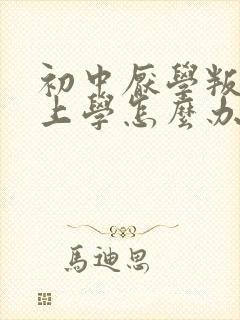 初中厭學叛
上學怎麼办
馬迪思